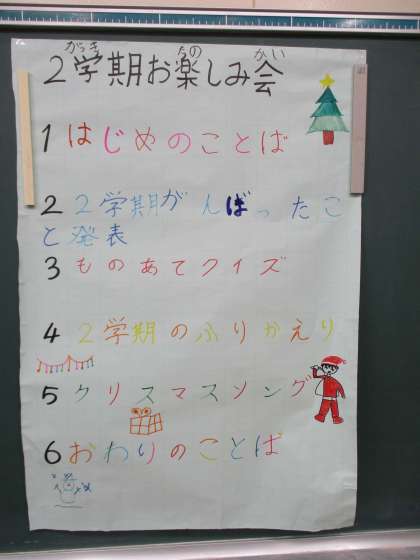 2学期お楽しみ会
がっき たの かい
1 はじめのことば
2 2学期がんばったこ
と発表
3 ものあてクイズ
4 2学期のふりかえり
5 クリスマスソング
6 おわりのことば